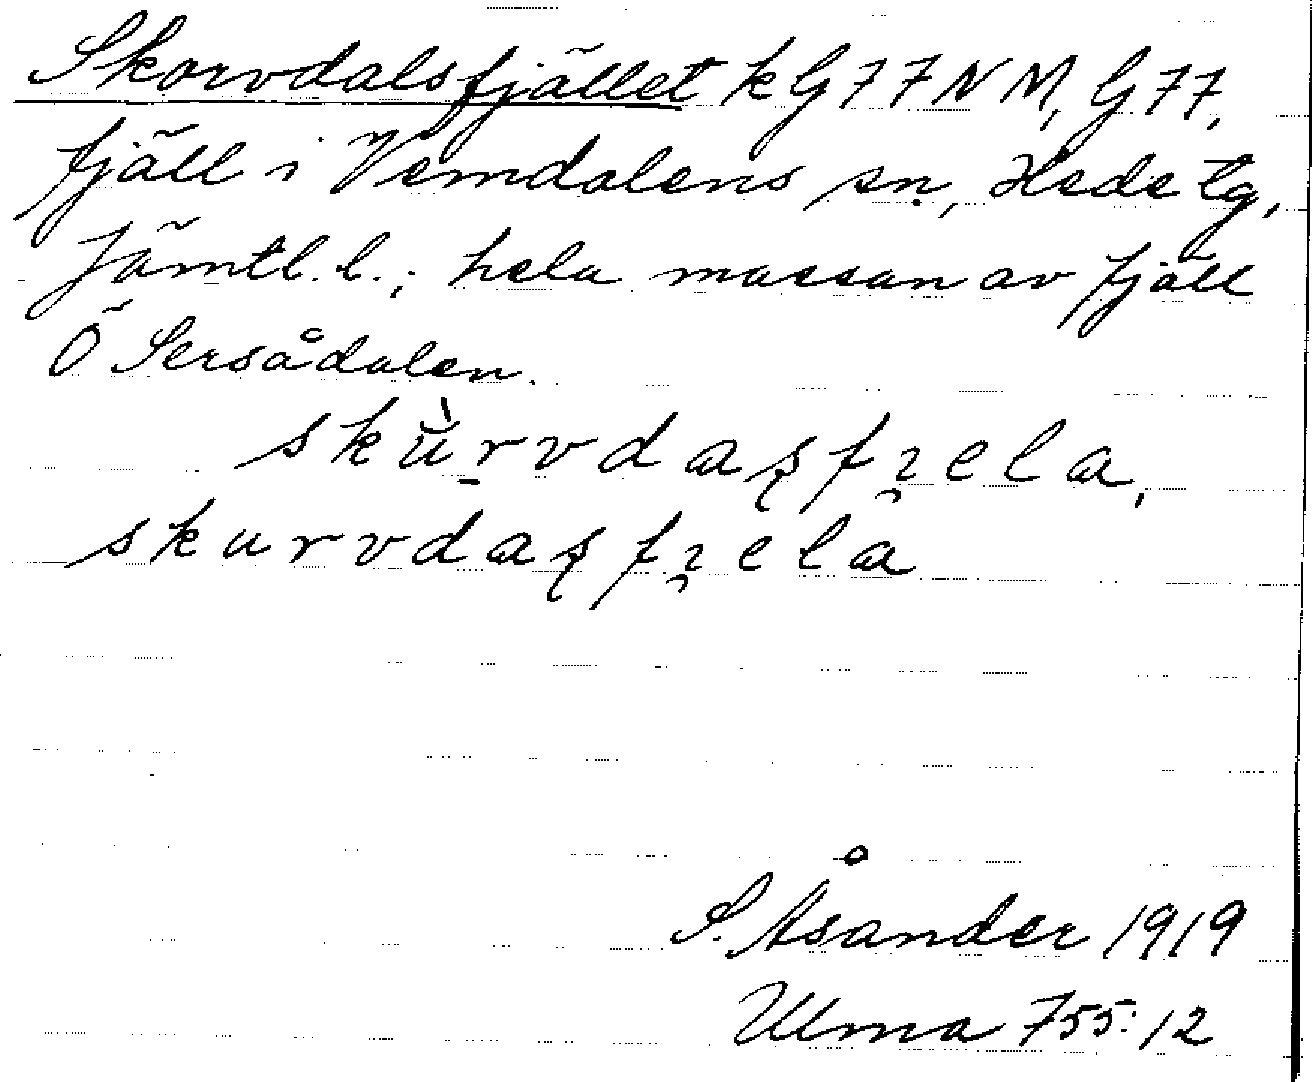 Skorvdalsfjället kG77NM, G77,
fjäll i Vemdalens sn, Hede tg,
Jämtl. l.; hela massan av fjäll
Ö Sersådalen.
skùrvdaʂfɿela,
skurvdaʂfɿela
S. Åsander 1919
Ulma 755:12